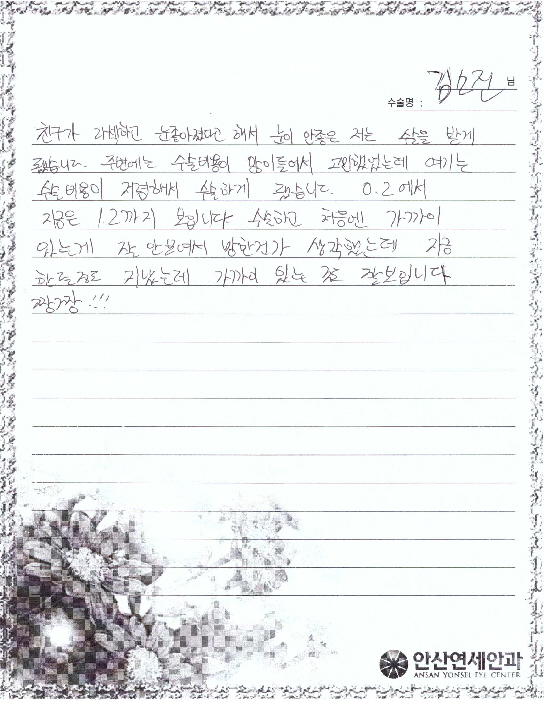 김오진 님
수술명 :
친구가 라섹하고 눈좋아졌다고 해서 눈이 안좋은 저는 수술을 받게
됐습니다. 주변에는 수술비용이 많이들어서 고민했었는데 여기는
수술비용이 저렴해서 수술하게 됐습니다. 0.2에서
지금은 1.2까지 보입니다 수술하고 처음엔 가까이
있는게 잘 안보여서 망한건가 생각했는데 지금
한달정도 지났는데 가까이 있는 것도 잘보입니다
짱짱!!!
안산연세안과
ANSAN YONSEI EYE CENTER